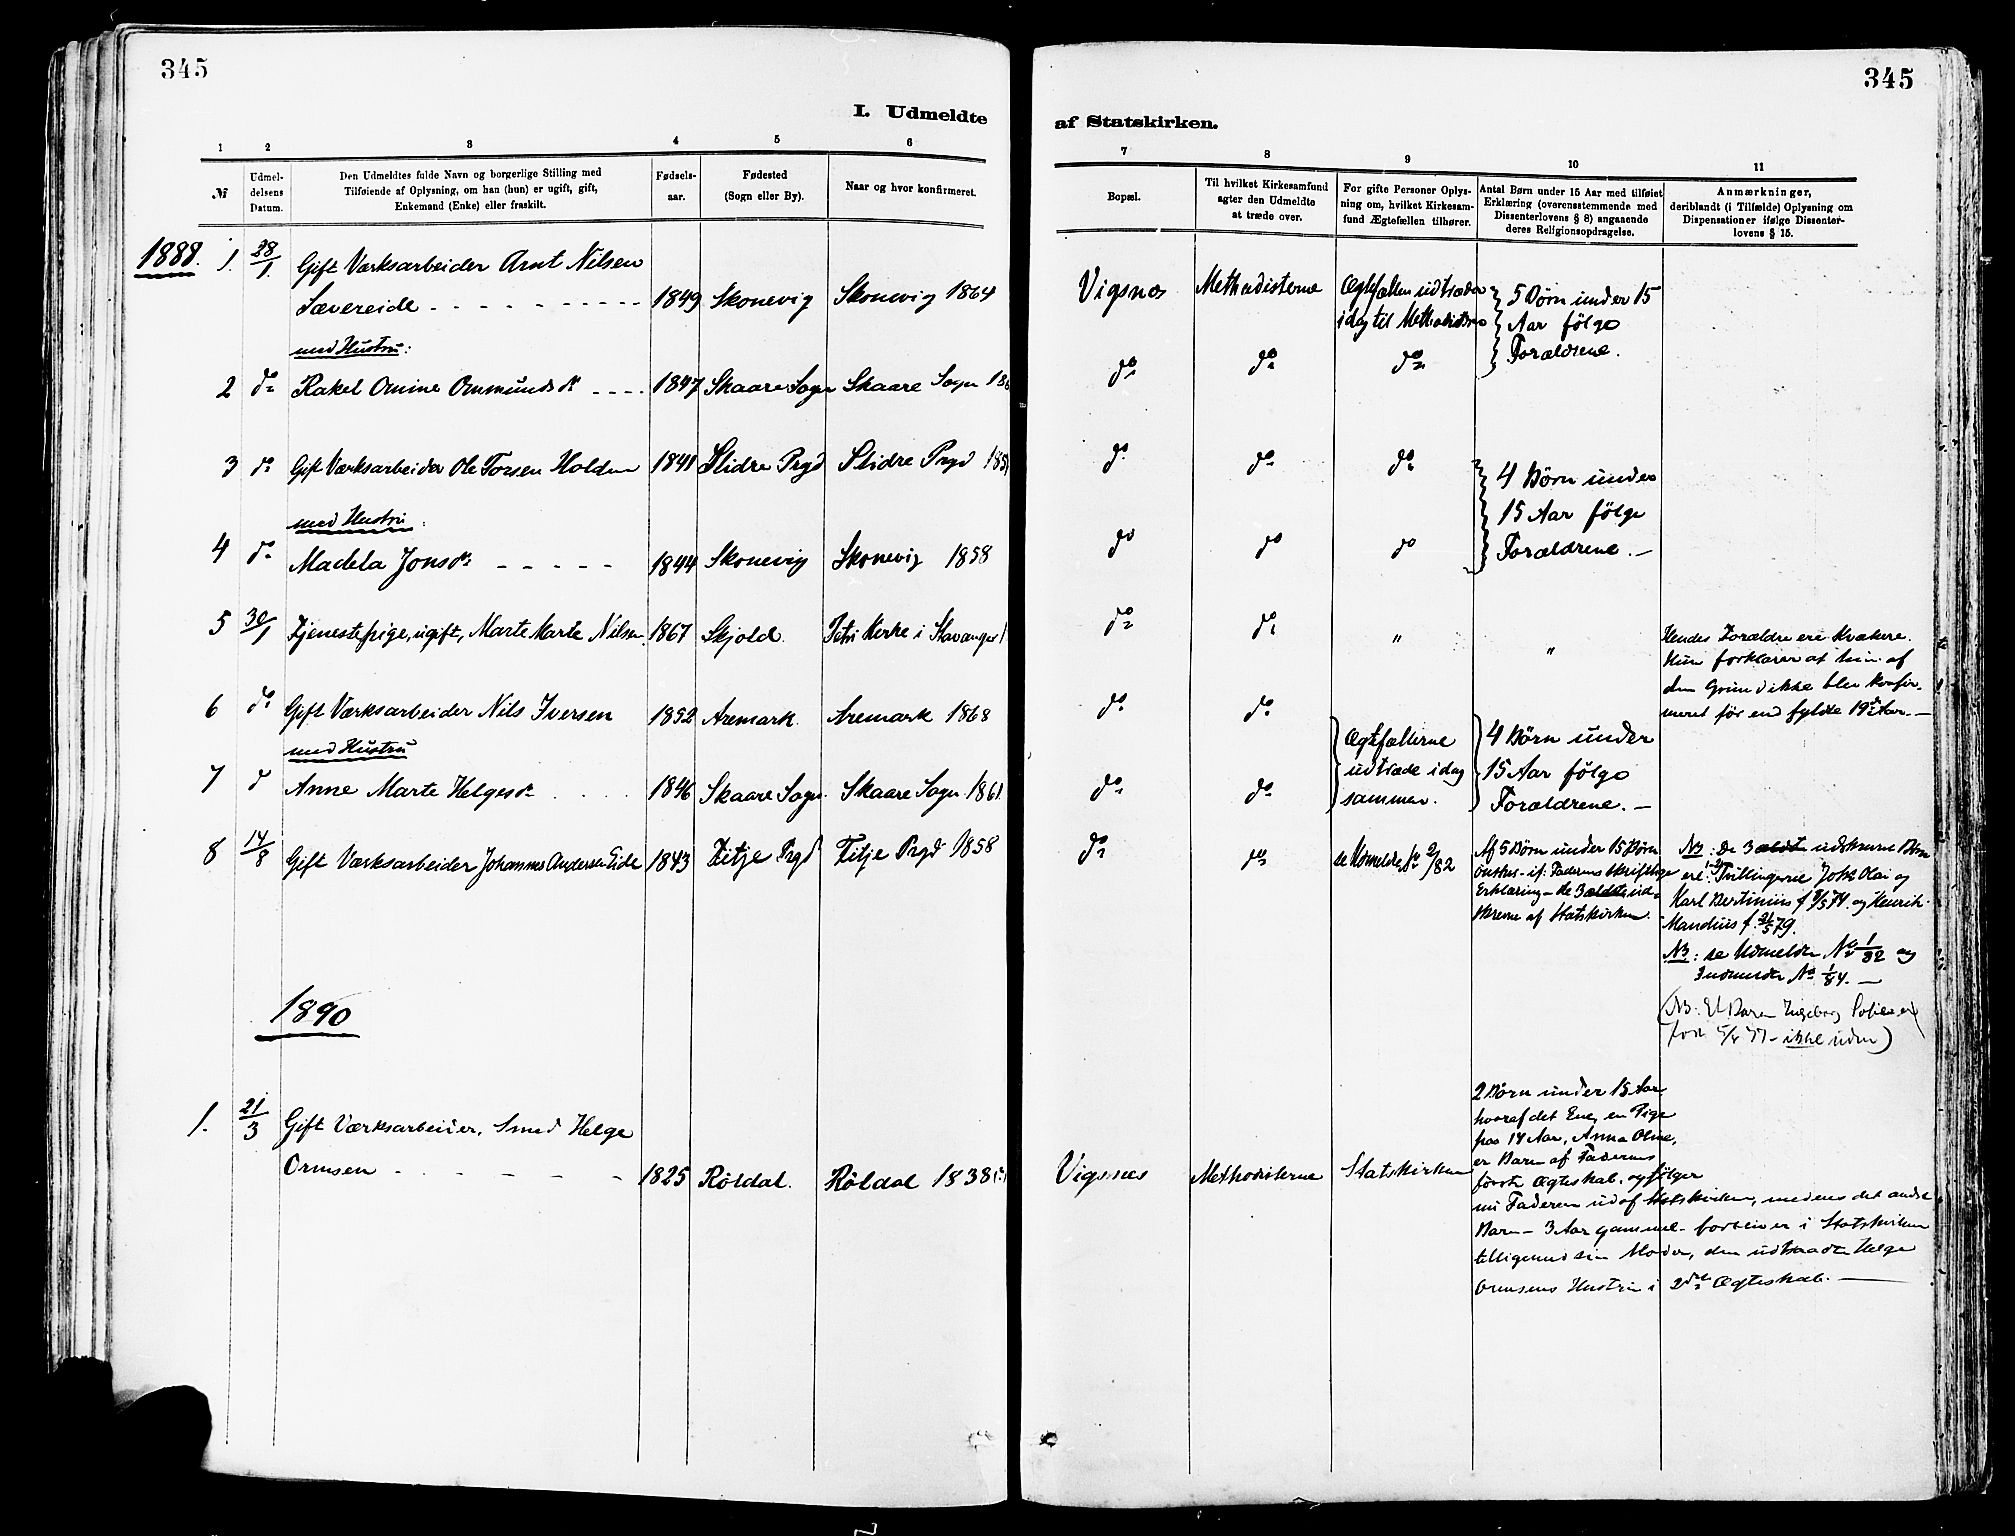 345
345
I. Udmeldte
af Statskirken.
1 2 3 4 5 6
7 8 9 10 11
№
Udmel-
delsens
Datum.
Den Udmeldtes fulde Navn og borgerlige Stilling med
Tilføiende af Oplysning, om han (hun) er ugift, gift,
Enkemand (Enke) eller fraskilt.
Fødsels-
aar.
Fødested
(Sogn eller By).
Naar og hvor konfirmeret.
Bopæl.
Til hvilket Kirkesamfund
agter den Udmeldte
at træde over.
For gifte Personer Oplys-
ning om, hvilket Kirkesam-
fund Ægtefællen tilhører.
Antal Børn under 15 Aar med tilføiet
Erklæring (overensstemmende med
Dissenterlovens § 8) angaaende
deres Religionsopdragelse.
Anmærkninger,
deriblandt (i Tilfælde) Oplysning om
Dispensationer ifølge Dissenter-
lovens § 15.
1888. 1. 28/1. Gift Værksarbeider Arnt Nilsen
Sævereide 1849 Skonevig Skonevig 1864
Vigsnæs Methodisterne
Ægtefællen udtræder
idag til Methodistene
5 Børn under 15
Aar følge
Forældrene.
med Hustru:
2 do Rakel Omine Ommundsdr 1847 Skaare Sogn Skaare Sogn
do do do
3 do Gift Værksarbeider Ole Torsen Holden 1841 Slidre Prgd Slidre Prgd
do do do
4 Børn under
15 Aar følge
Forældrene. —
med Hustru:
4 do Madela Jonsdr 1844 Skonevig Skonevig 1858
do do do
5 30/1 Tjenestepige, ugift, Marte Karte Nilsen 1867 Skjold Petri Kirke i Stavanger
do do " "
Hendes Forældre ere Kvækere.
Hun forklarer at hun af
den Grund ikke blev konfir-
meret før end fyldte 19 Aar. —
6 do Gift Værksarbeider Nils Iversen 1852 Aremark Aremark 1868
do do
Ægtefællerne
udtræde idag
sammen.
4 Børn under
15 Aar følge
Forældrene. —
med Hustru
7 do Anne Marte Helgesdr 1846 Skaare Sogn Skaare Sogn 1861.
do do
8 14/8 Gift Værksarbeider Johannes Andersen Eide 1843 Fitje Prgd Fitje Prgd 1858
do do se Udmeldte № 2/82
Af 5 Børn under 15 Børn
ønskes - if: Faderens skriftlige
Erklæring - de 3 ældste ud-
skrevne af Statskirken.
NB: De 3 ældst udskrevne Børn
ere: Tvillingerne Johs Olai og
Karl Bertinius f 9/5 74. og Henrik
Mandius f. 21/5 79.
NB: se Udmeldte № 1/82 og
Indmeldte № 1/84. —
(NB. Et Barn Ingeborg
født 77 - ikke udm)
1890
1. 21/3 Gift Værksarbeider, Smed Helge
Ormsen 1825 Röldal. Röldal 1838
Vigsnæs Methodisterne Statskirken
2 Børn under 15 Aar
hvoraf det Ene, en Pige
paa 14 Aar, Anna Oline,
er Barn af Faderens
første Ægteskab, og følger
nu Faderen ud af Statskirken, medens det andre
Barn - 3 Aar gammel - forbliver i Statskirken
tilligemed sin Moder, den udtraadte Helge
Ormsens Hustru i 2det Ægteskab. —